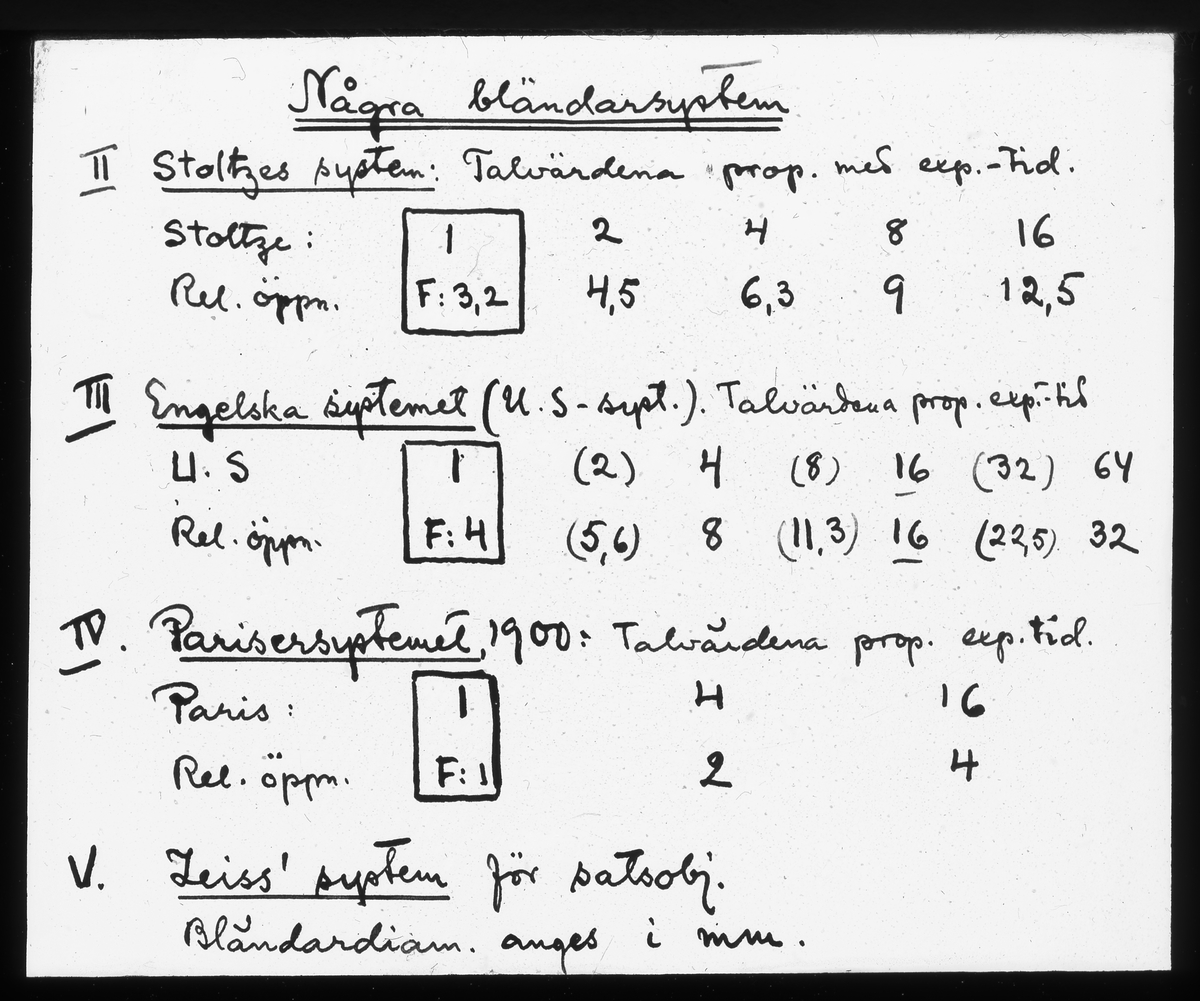 Några bländarsystem
II Stoltzes system: Talvärdena prop. med exp.-tid.
Stoltze: 1 2 4 8 16
Rel. öppn. F:3,2 4,5 6,3 9 12,5
III Engelska systemet (U.S-syst.). Talvärdena prop. exp.-tid
U.S 1 (2) 4 (8) 16 (32) 64
Rel. öppn. F:4 (5,6) 8 (11,3) 16 (22,5) 32
IV. Parisersystemet, 1900: Talvärdena prop. exp. tid.
Paris: 1 4 16
Rel. öppn. F:1 2 4
V. Zeiss' system för satsobj.
Bländardiam. anges i mm.